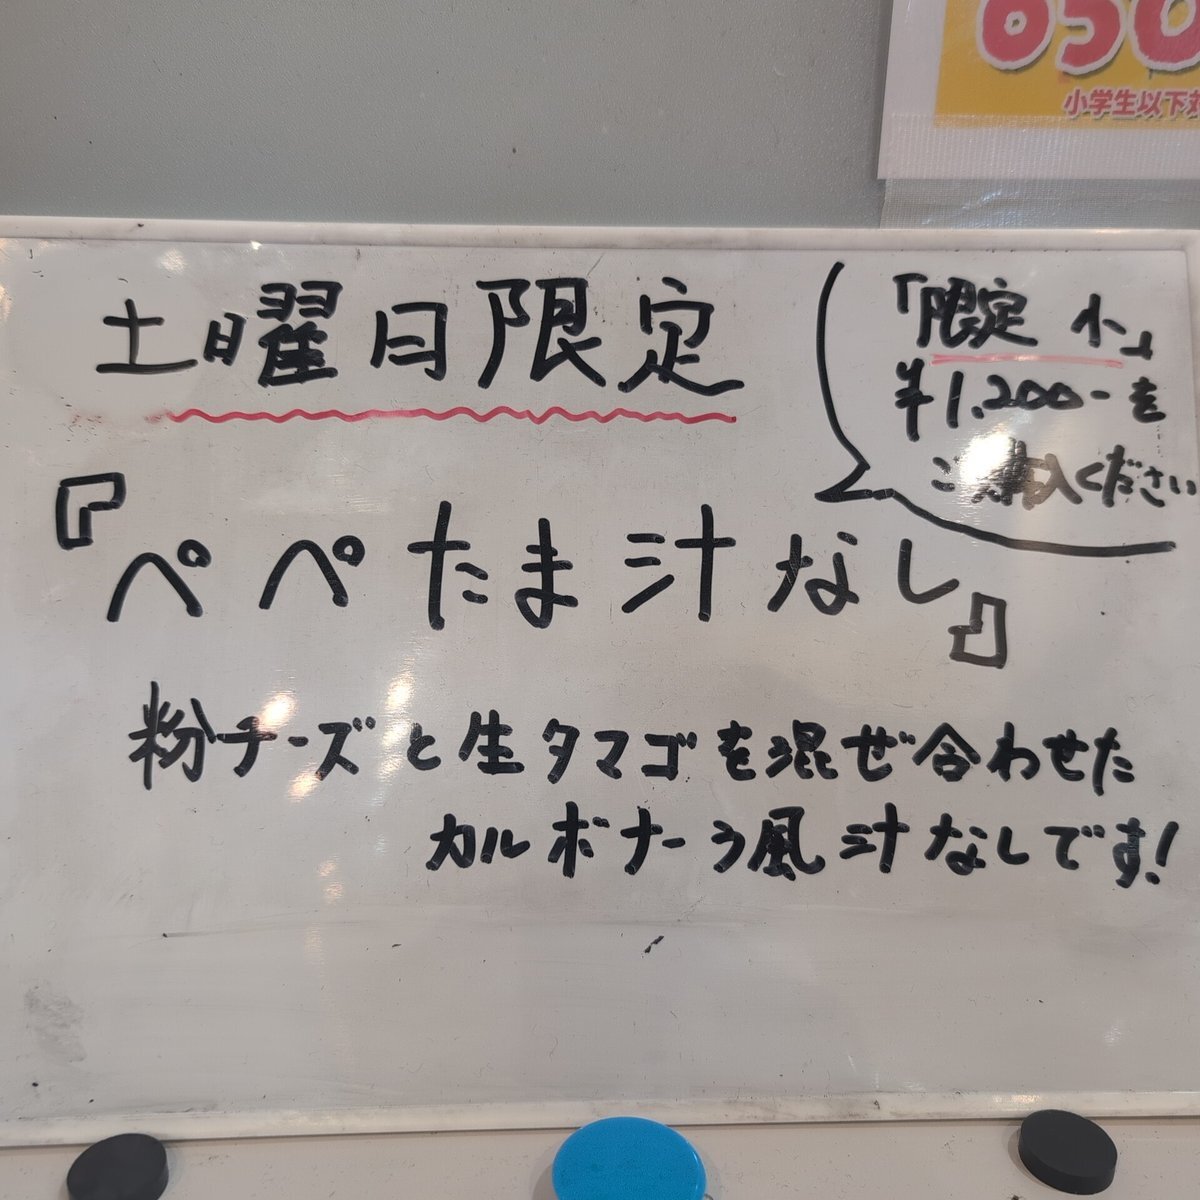 650
小学生以下
土曜日限定
「限定 小」
¥1,200-を
ご購入ください
『ペペたま汁なし』
粉チーズと生タマゴを混ぜ合わせた
カルボナーラ風汁なしです!